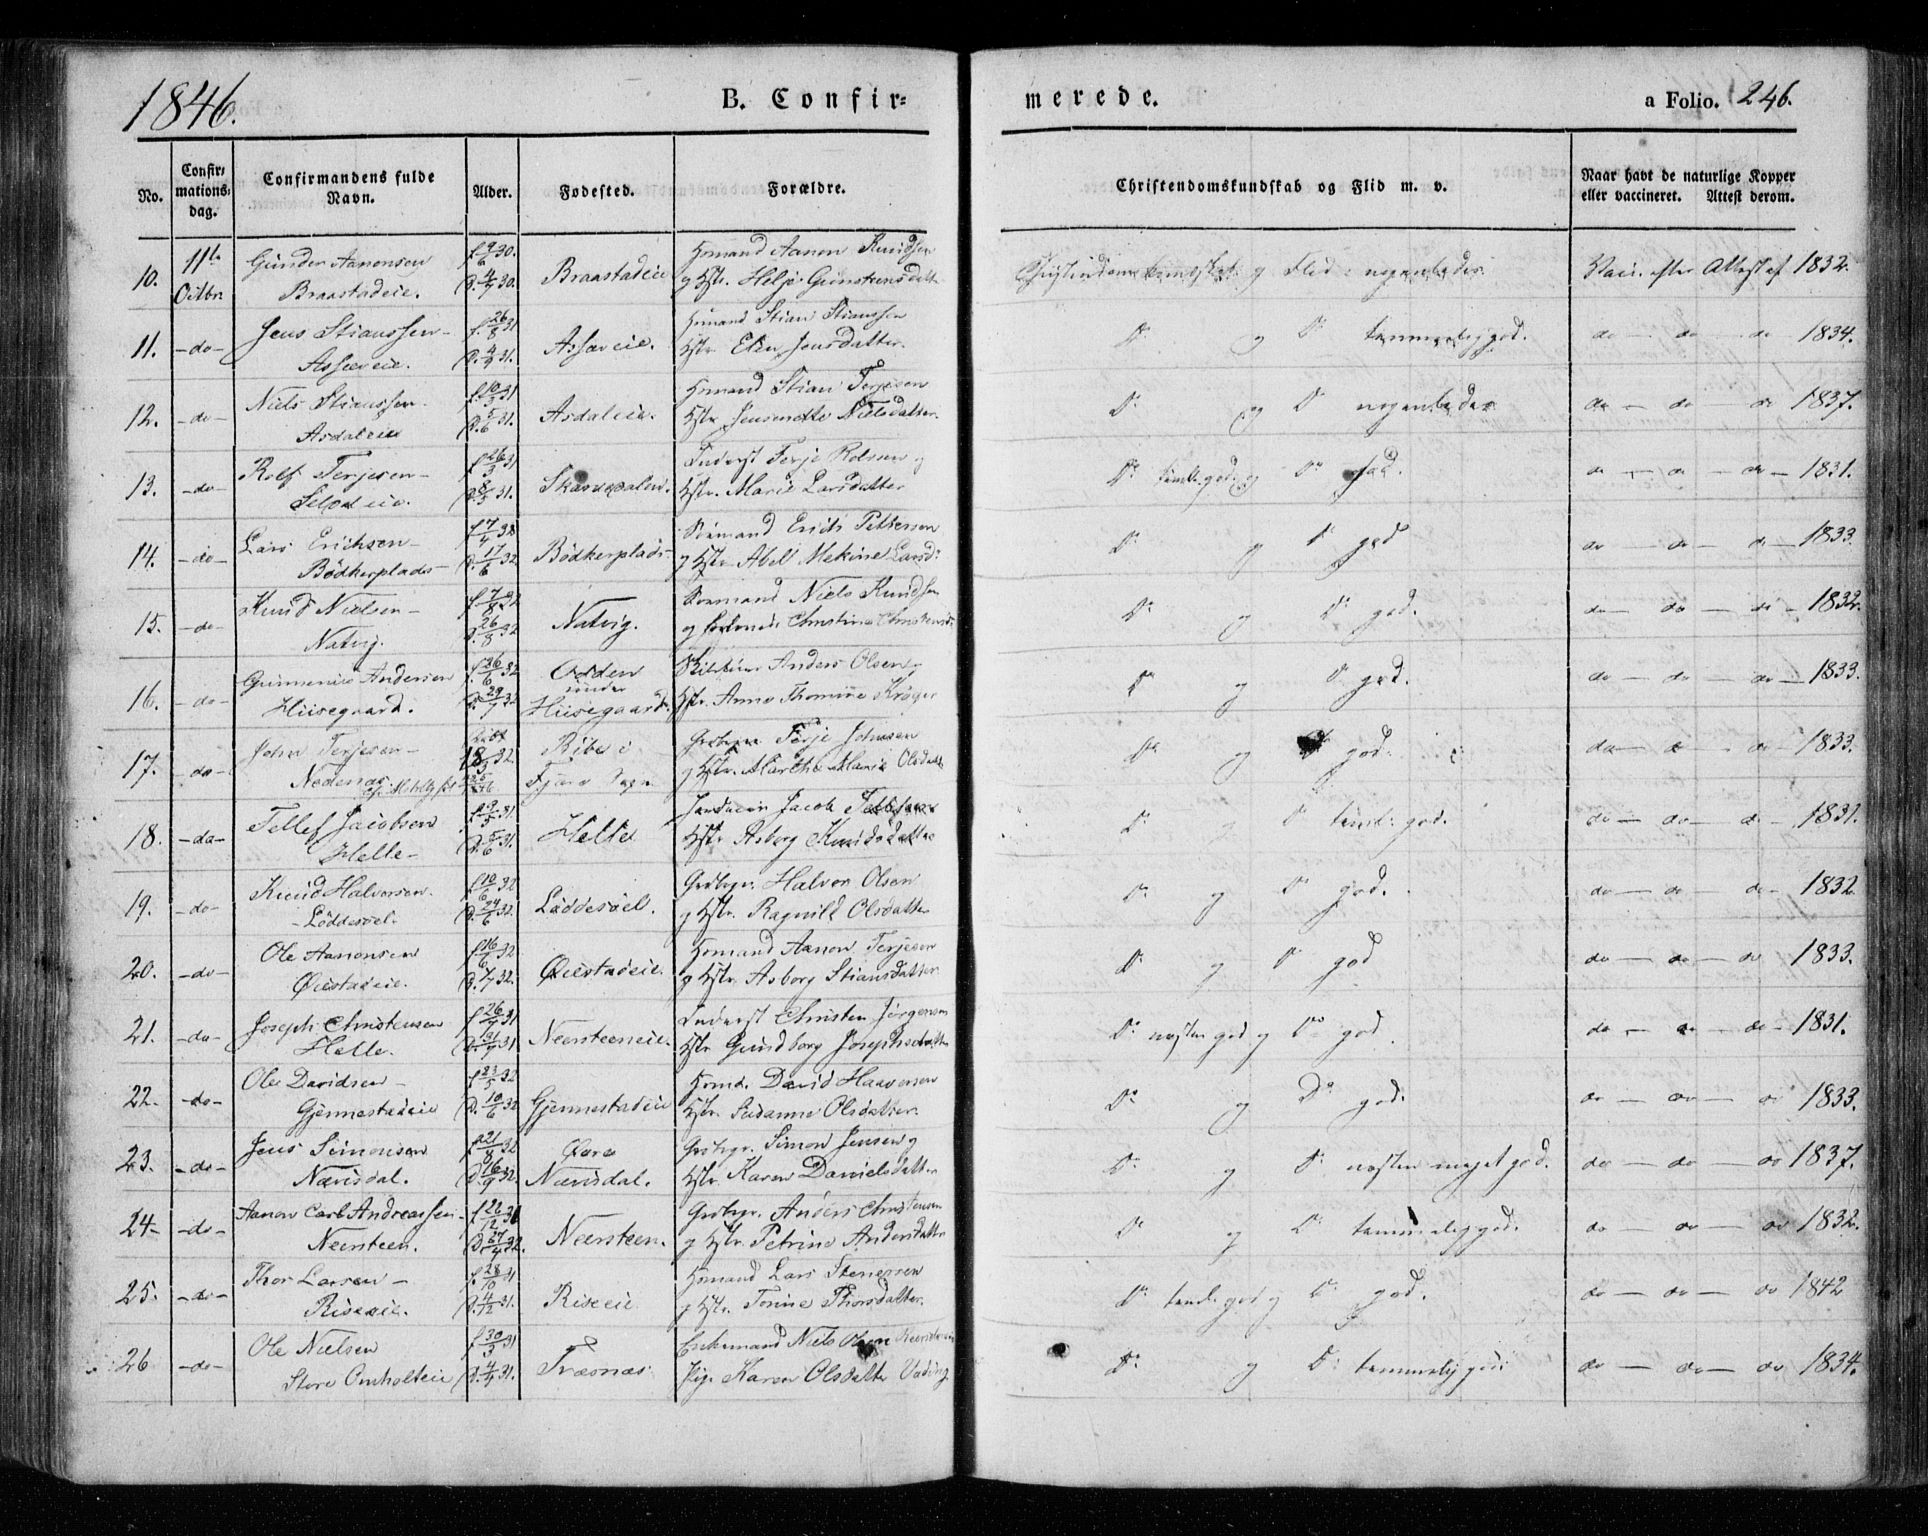 1846.
B. Confir=
merede.
a Folio. 246.
No.
Confir=
mations=
dag.
Confirmandens fulde
Navn.
Alder.
Fødested.
Forældre.
Christendomskundskab og Flid m. v.
Naar havt de naturlige Kopper
eller vaccineret. Attest derom.
10. 11te Gunder Aanonsen f. 9/6 30. Braastadeie Hsmand Aanon Knudsen Christendoms kundskab og Flid: nogenledes Vacc. efter Attest af 1832.
Octbr Braastadeie. D. 4/7 30. og Hstr. Helje Gunstensdatter
11. -do- Jens Stiansen f. 26/8 31 Assæveie. Husmand Stian Stiansen Do og Do temmelig god. do - do - do - 1834.
Assæveie. Hstr. Elen Jensdatter.
12. -do- Niels Stiansen f. 10/5 31 Asdaleie. Hsmand Stian Terjesen Do og Do nogenledes do - do - do 1837.
Asdaleie D. 5/6 31. Hstr. Jensmette Nielsdatter.
13. -do- Rolf Terjesen f. 26/3 31 Inderst Terje Rolfsen og Do teml. god og Do do - do - do - 1831.
D. 31. Hstr. Marie Larsdatter
14. -do- Lars Erichsen f. 7/4 32 Bödkerplads Sömand Erich Pettersen Do og Do god do - do - do - 1833.
Bödkerplads D. 17/6 32 og Hstr. Abel Mekine Larsd:
15. -do- Knud Nielsen f. 7/8 32 Natvig. Sömand Niels Knudsen Do og Do god. do - do - do - 1832.
Natvig. D. 26/8 32 og Christine
16. -do- Andersen f. 26/6 32 Odden Anders Olsen Do og Do god. do - do - do - 1833.
Hiisegaard. D. 29/7 32 under Hiisegaard. Hstr. Anne Thomine Kröger
17. -do- John Terjesen 18 32 Ribe i Grdbgr. Terje Johnsen Do og Do god. do - do - do - 1833.
Nedenæs Fjære Sogn og Hstr. Marthe Marie Olsdatter
18. -do- Tellef Jacobsen f. 9/5 31. Helle Jacob Tellefsen Do og Do teml: god. do - do - do - 1831.
Helle D. 5/6 31. Hstr. Asborg Knudsdatter
19. -do- Knud Halvorsen f. 10/6 32 Löddesöel. Grdbgr. Halvor Olsen Do og Do god. do - do - do - 1832
Löddesöel. D. 24/6 32. og Hstr. Ragnild Olsdatter
20. -do- Ole Aanonsen f. 16/6 32 Øiestadeie. Hsmand Aanon Terjesen Do og Do god do - do - do 1833.
Øiestadeie. og Hstr. Asborg Stiansdatter
21. -do- Joseph Christensen f. 26/7 31 Neersteeneie. Inderst Christen Jørgensen Do næsten god og Do god do - do - do - 1831.
Helle. Hstr. Gundborg Josephsdatter
22. -do- Ole Davidsen f. 23/5 32 Gjennestadeie Hsmd. David Haavorsen Do og Do god. do - do - do 1833.
Gjennestadeie D. 10/6 32 Hstr. Susanne Olsdatter.
23. -do- Jens Simonsen f. 21/8 32 Øvre Grdbgr. Simon Jensen og Do og Do næsten meget god. do - do - do 1837.
Nævisdal. D. 16/9 32. Nævisdal. Hstr. Karen Danielsdatter
24 -do- Aanon Carl Andreassen f. 26/12 31 Neersteen. Grdbgr. Anders Christensen Do og Do temmelig god. do - do - do 1832.
Neersteen. D. 32. og Hstr. Petrine Andersdatter
25. -do- Thor Larsen f. 28/10 31 Riseeie Hsmand Lars Stenersen Do teml. god og Do god. do - do - do 1842
Riseeie. D. 4/12 31. og Hstr. Torine Thorsdatter.
26 -do- Ole Nielsen f. 30/3 31 Træsnæs Enkemand Niels Olsen Do og Do temmelig god: do - do - do 1834.
Store Omholteie Pige Karen Olsdatter